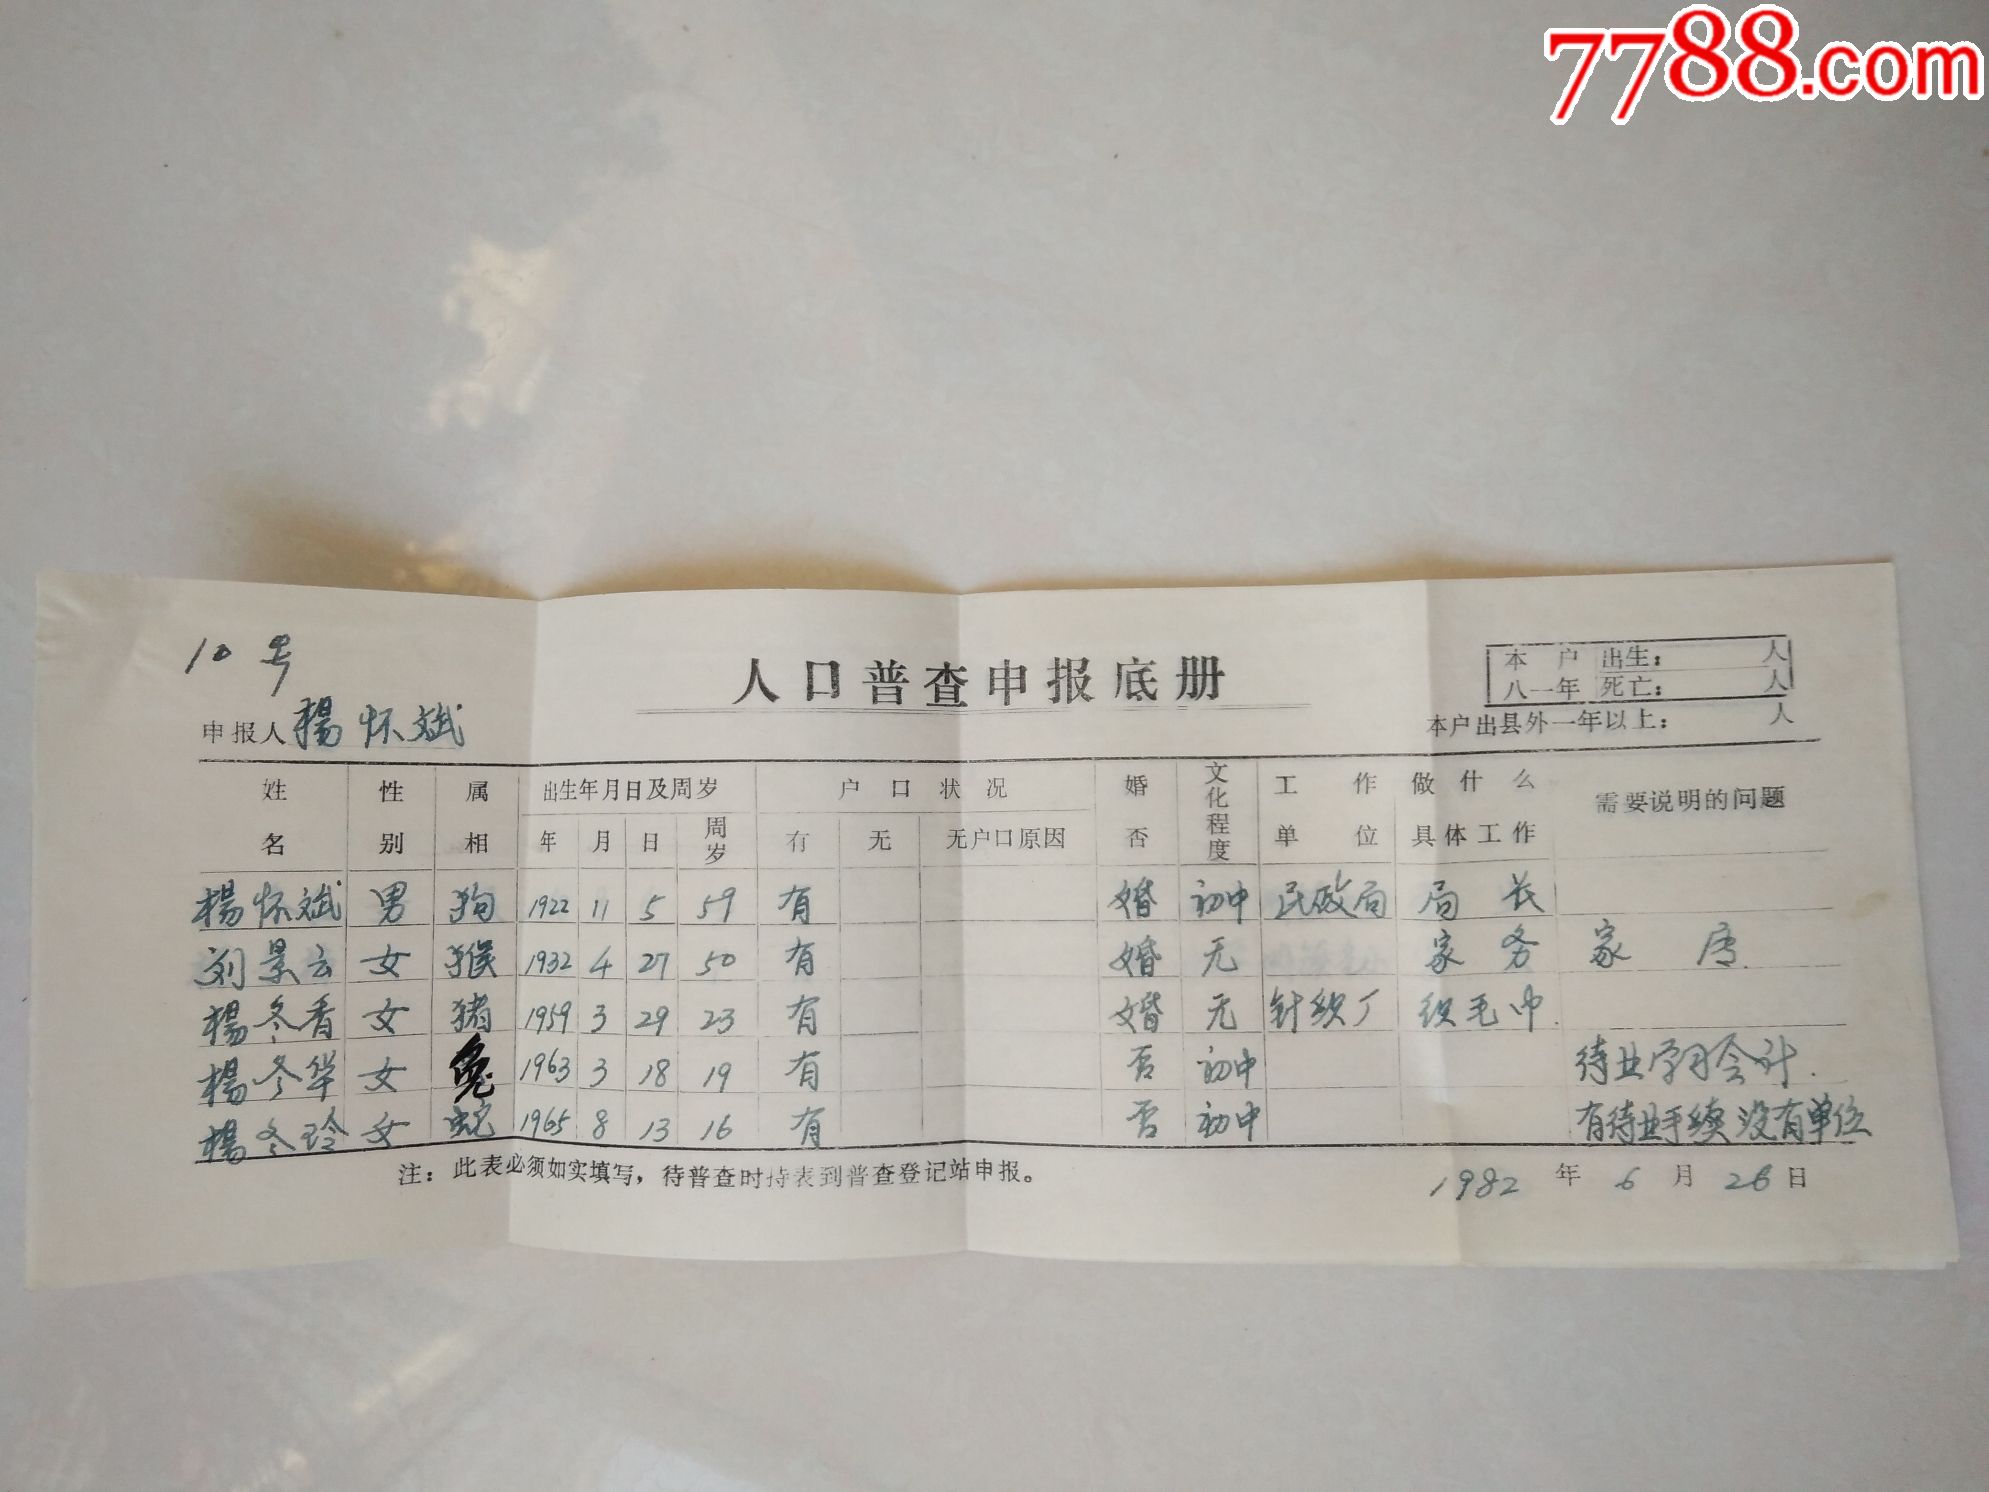 7788.com
10号
人口普查申报底册
本户 出生： 人
八一年 死亡： 人
申报人 楊怀斌
本户出县外一年以上： 人
姓名 性别 属相 出生年月日及周岁 户口状况 婚否 文化程度 工作单位 做什么具体工作 需要说明的问题
年 月 日 周岁 有 无 无户口原因
楊怀斌 男 狗 1922 11 5 59 有 婚 初中 民政局 局长
刘景云 女 猴 1932 4 27 50 有 婚 无 家务 家
楊冬香 女 猪 1959 3 29 23 有 婚 无 针织厂 织毛巾
楊冬华 女 兔 1963 3 18 19 有 否 初中 待业学习会计.
楊冬玲 女 蛇 1965 8 13 16 有 否 初中 有待业手续没有单位
注：此表必须如实填写，待普查时持表到普查登记站申报。
1982年6月26日